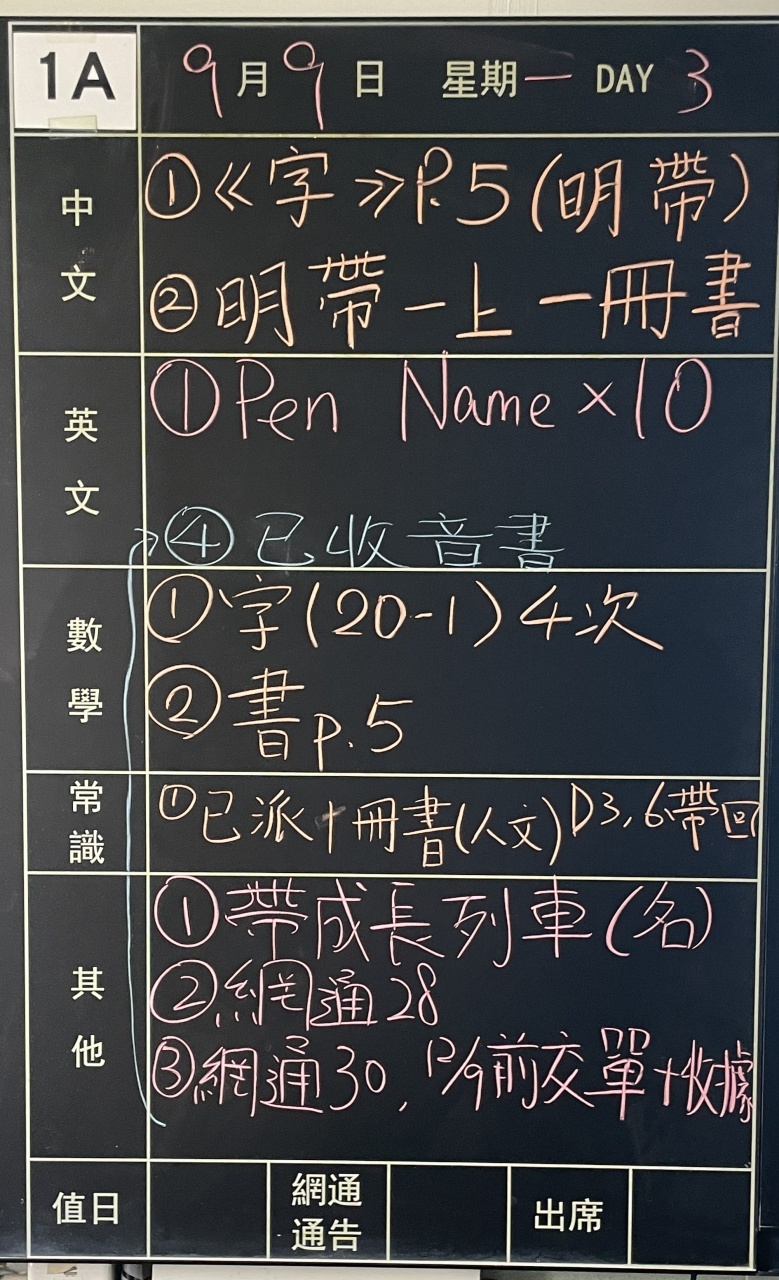 1A 9月9日 星期一 DAY 3
中文
①《字》P.5(明帶)
②明帶一上一冊書
英文
①Pen Name×10
④已收音書
數學
①字(20-1)4次
②書p.5
常識
①已派十冊書(人文)D3,6帶回
其他
①帶成長列車(名)
②網通28
③網通30,12/9前交單+收據
值日 網通通告 出席